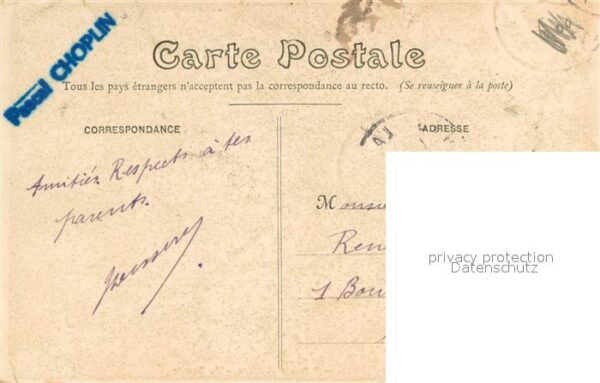 Pascal CHOPLIN
Carte Postale
Tous les pays étrangers n'acceptent pas la correspondance au recto. (Se renseigner à la poste)
CORRESPONDANCE
Amitiés Respects à tes
parents.
ADRESSE
Monsieu
Ren
1 Bou
privacy protection
Datenschutz